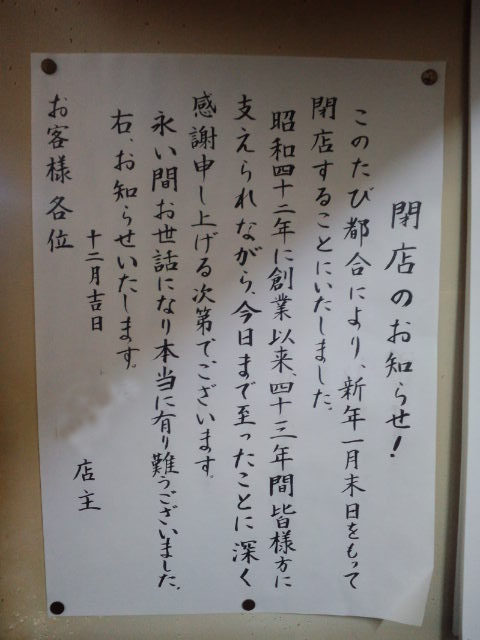 閉店のお知らせ!
このたび都合により、新年一月末日をもって
閉店することにいたしました。
昭和四十二年に創業以来、四十三年間皆様方に
支えられながら、今日まで至ったことに深く
感謝申し上げる次第でございます。
永い間お世話になり本当に有り難うございました。
右、お知らせいたします。
十二月吉日
店主
お客様各位